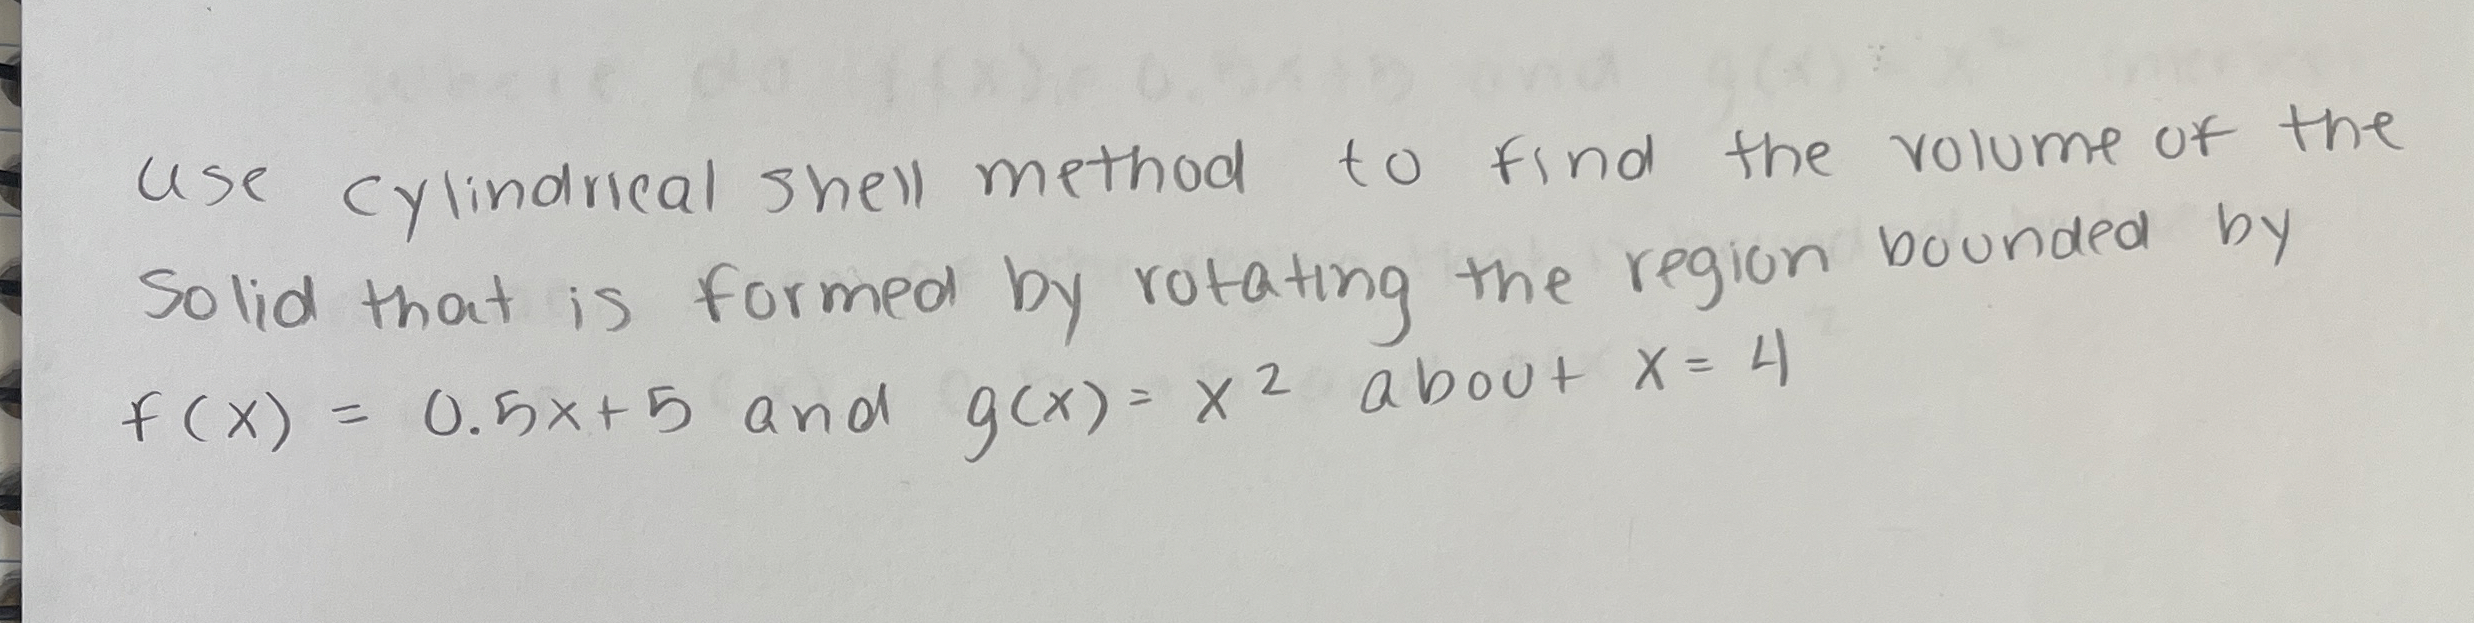 use cylindrical shell method to find the volume of the
Solid that is formed by rotating the region bounded by
f(x) = 0.5x+5 and g(x) = x² about x = 4